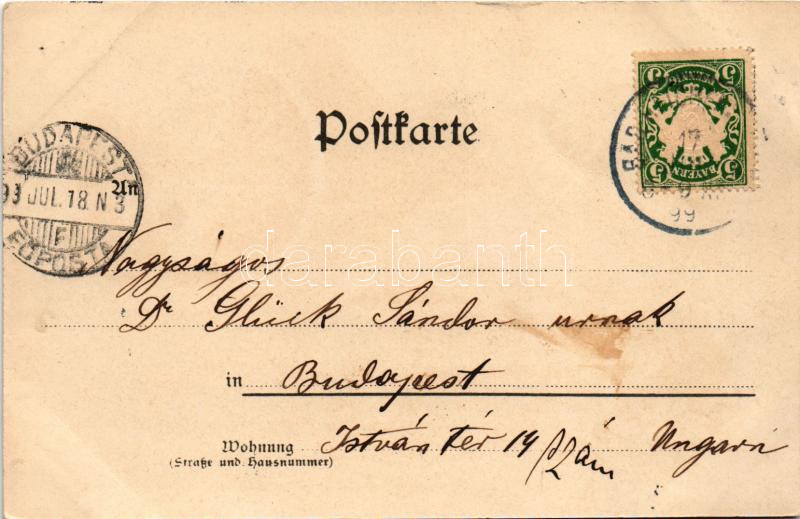 Postkarte
BAYERN
5 5
5 5
17
99
BUDAPEST
99 JUL. 18. N 3
F
FŐPOSTA
An
Nagyságos
Dr Glück Sándor urnak
in Budapest
Wohnung István tér 14 szám Ungarn
(Straße und Hausnummer)
darabanth